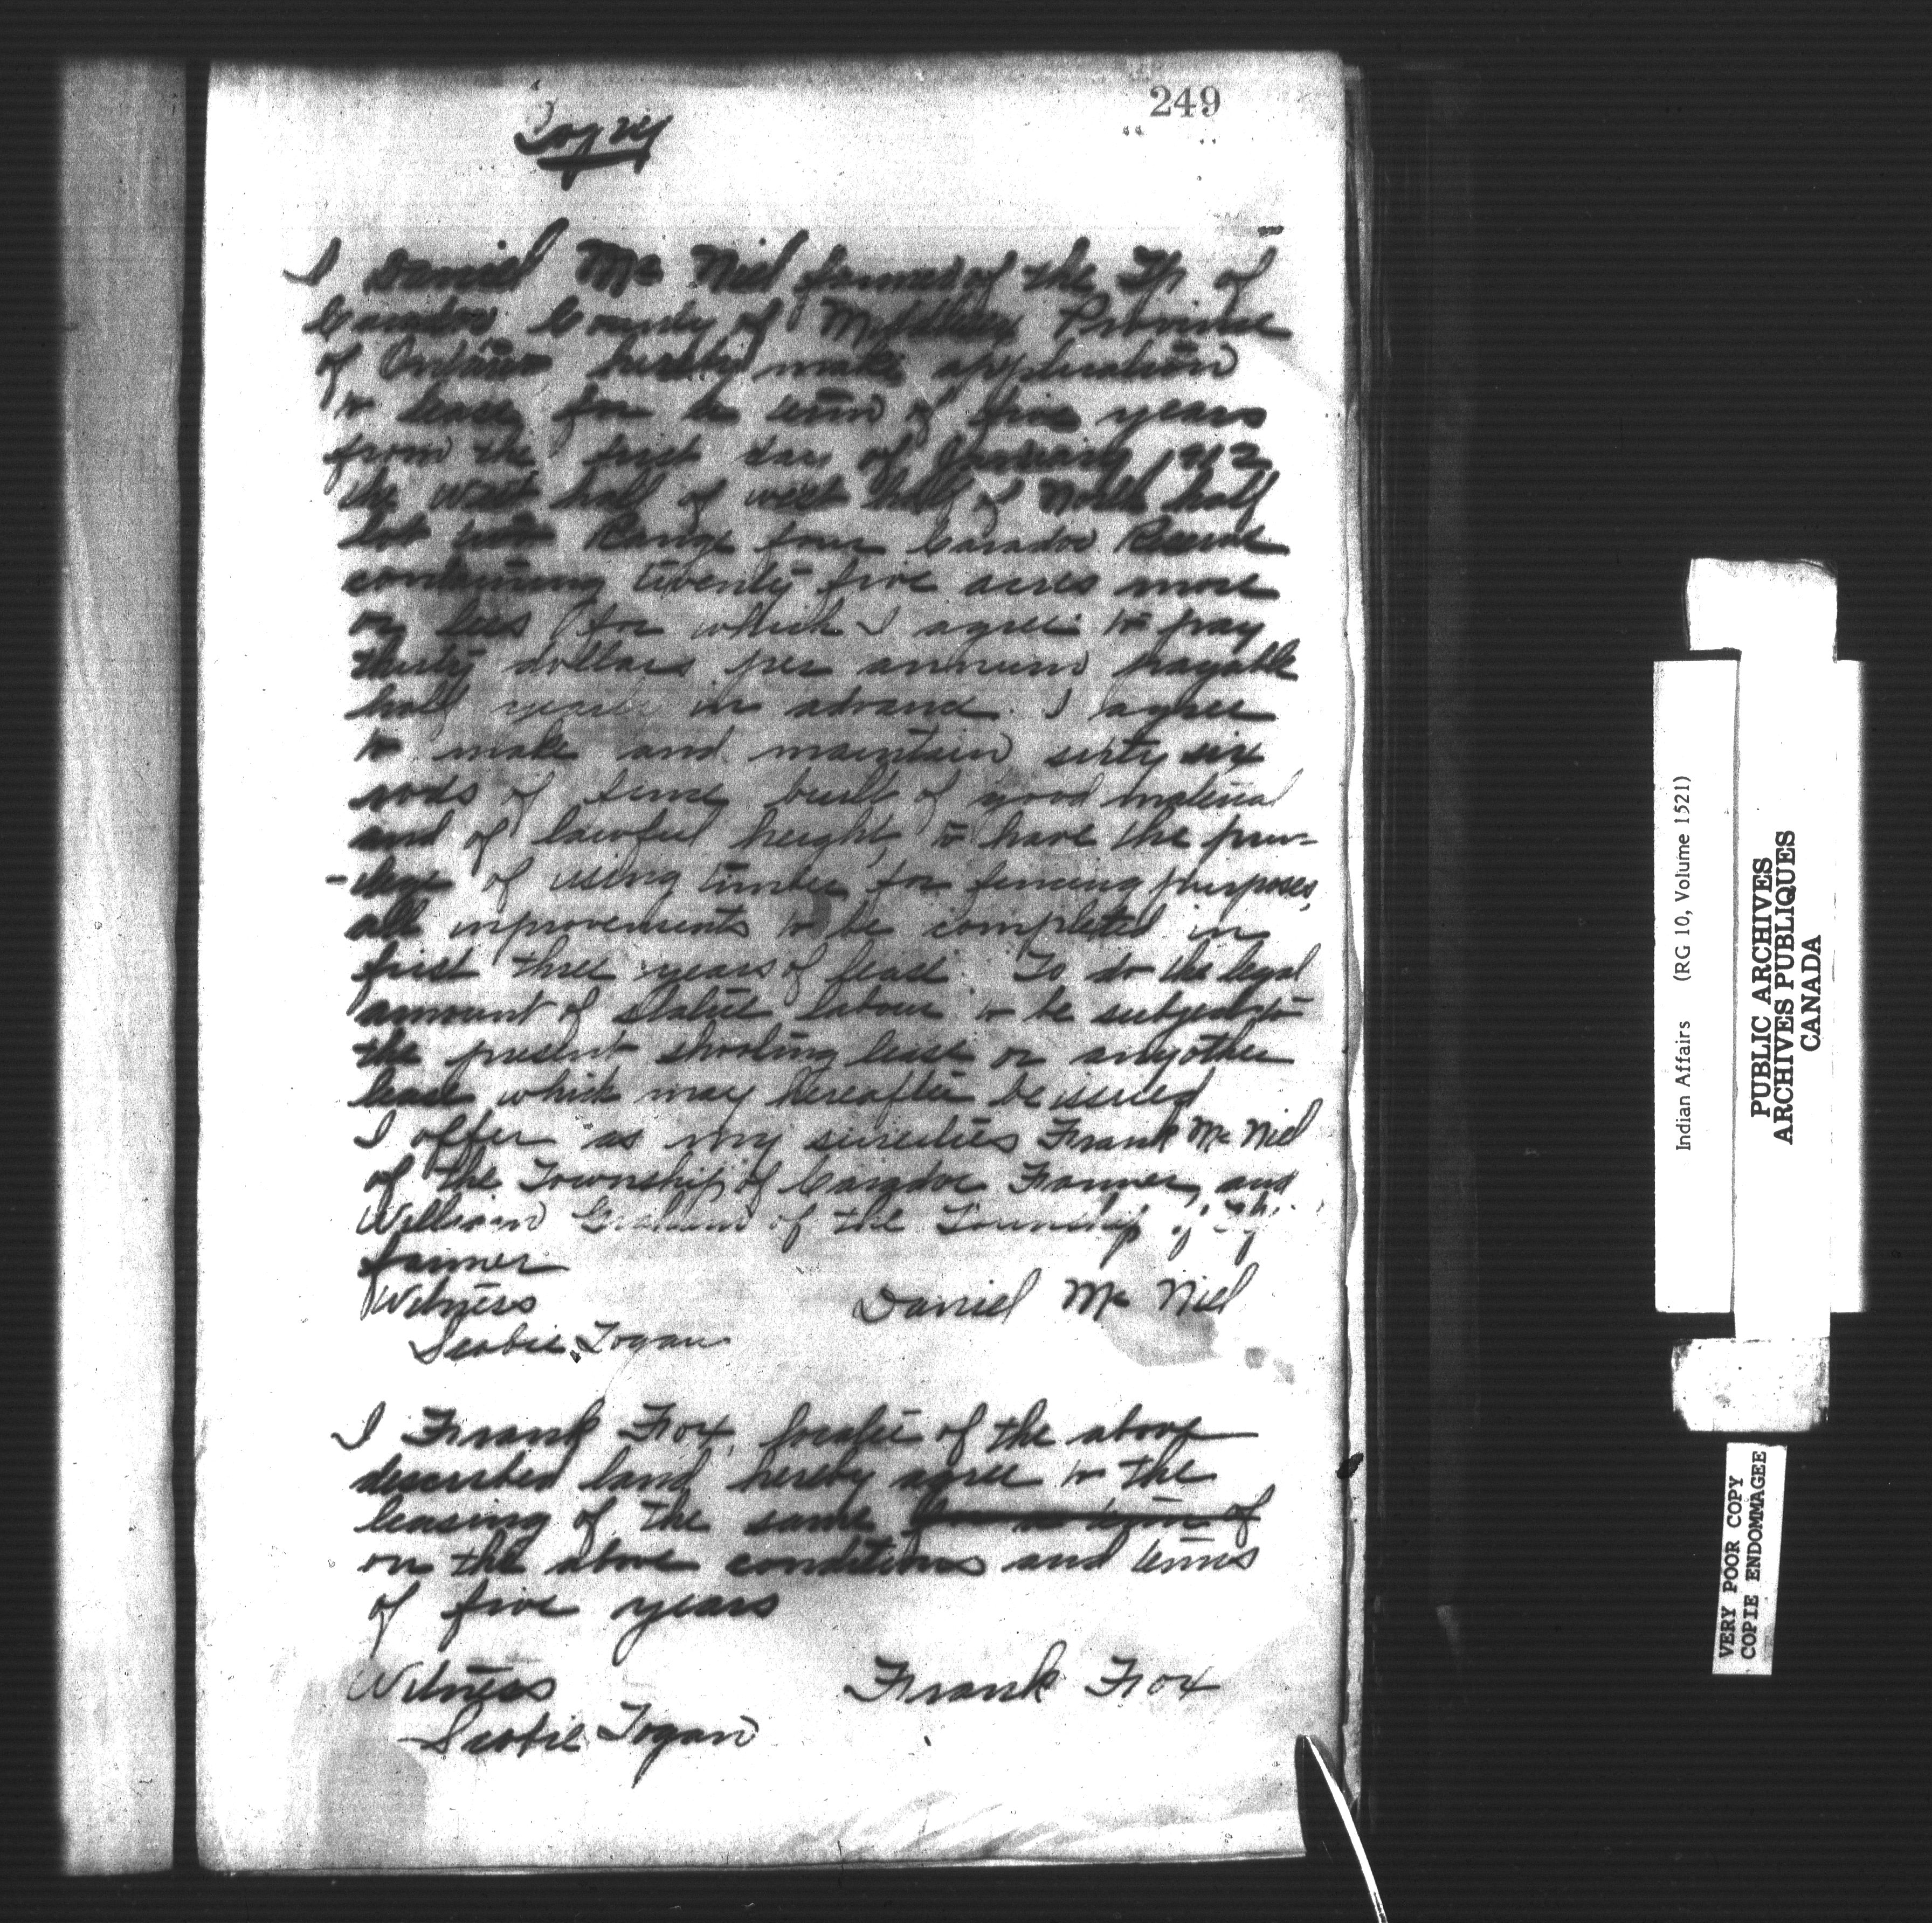 249
Copy
I Daniel Mc Niel farmer of the Tp of
Caradoc County of Middlesex Province
of Ontario hereby make application
to lease for a term of five years
from the first day of January 1912
the West half of west half of North half
lot Range four Caradoc Reserve
containing twenty five acres more
or less for which I agree to pay
thirty dollars per annum payable
half yearly in advance. I agree
to make and maintain sixty six
rods of fence built of good material
and of lawful height, to have the priv-
-ilege of using timber for fencing purposes,
all inprovements to be completed in
first three years of lease. To do the legal
amount of statute labour to be subject to
the present shooting lease or any other
lease which may hereafter be issued
I offer as my sureties Frank Mc Niel
of the Township of Caradoc Farmer, and
William Graham of the Township of
farmer
Witness Daniel Mc Niel
Scobie Logan
I Frank Fox, locatee of the above
described land hereby agree to the
leasing of the same for a term of
on the above conditions and terms
of five years
Witness Frank Fox
Scobie Logan
Indian Affairs (RG 10, Volume 1521)
PUBLIC ARCHIVES
ARCHIVES PUBLIQUES
CANADA
VERY POOR COPY
COPIE ENDOMMAGEE